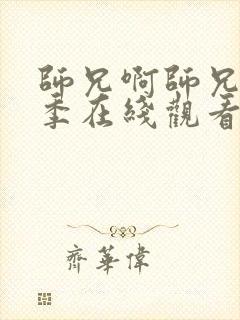 師兄啊師兄
季在綫觀看
齊華偉